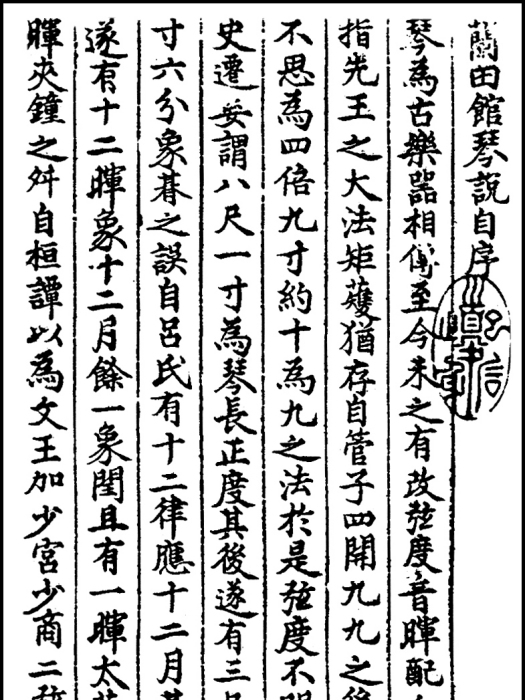 蘭田館琴說自序
琴為古樂器相傳至今未之有改弦度音暉配
指先王之大法矩矱猶存自管子四開九九之後
不思為四倍九寸約十為九之法於是弦度不明
史遷妄謂八尺一寸為琴長正度其後遂有三尺
寸六分象朞之誤自呂氏有十二律應十二月
遂有十二暉象十二月餘一象閏且有一暉太
暉夾鐘之舛自桓譚以為文王加少宮少商二